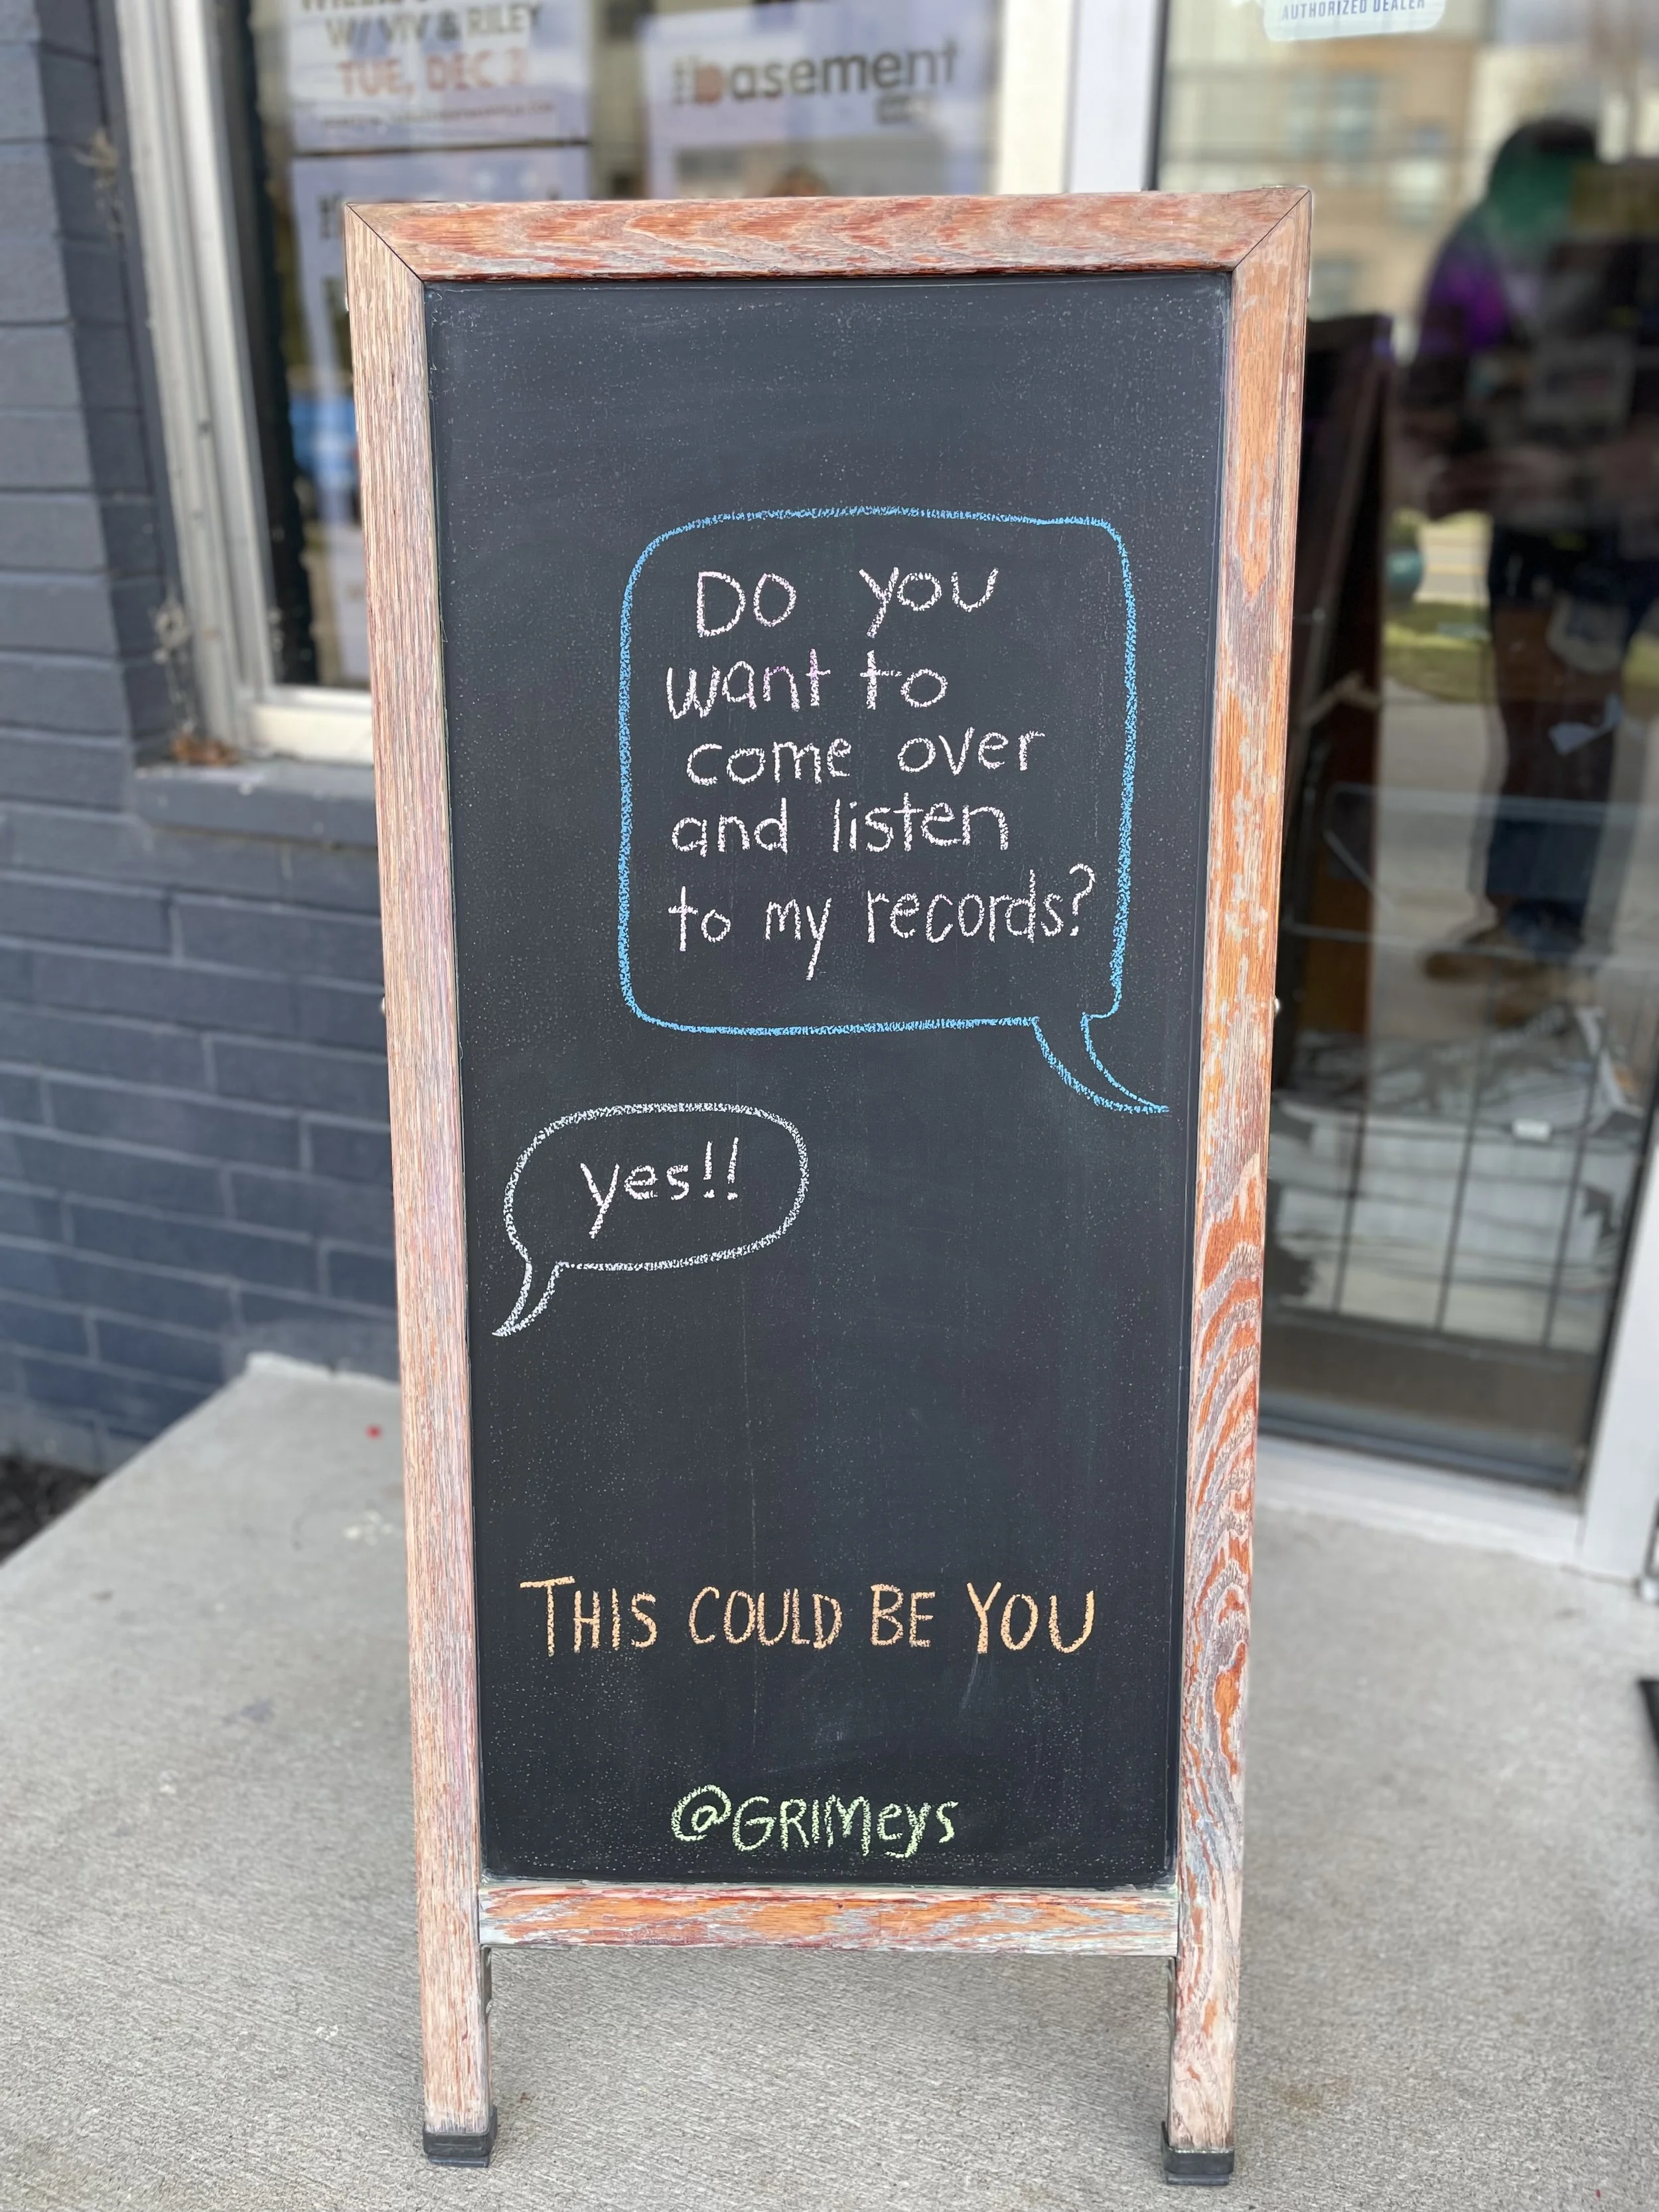 W/ VIV & RILEY
TUE, DEC
the basement
AUTHORIZED DEALER
Do you
want to
come over
and listen
to my records?
yes!!
THIS COULD BE YOU
@GRIMeys